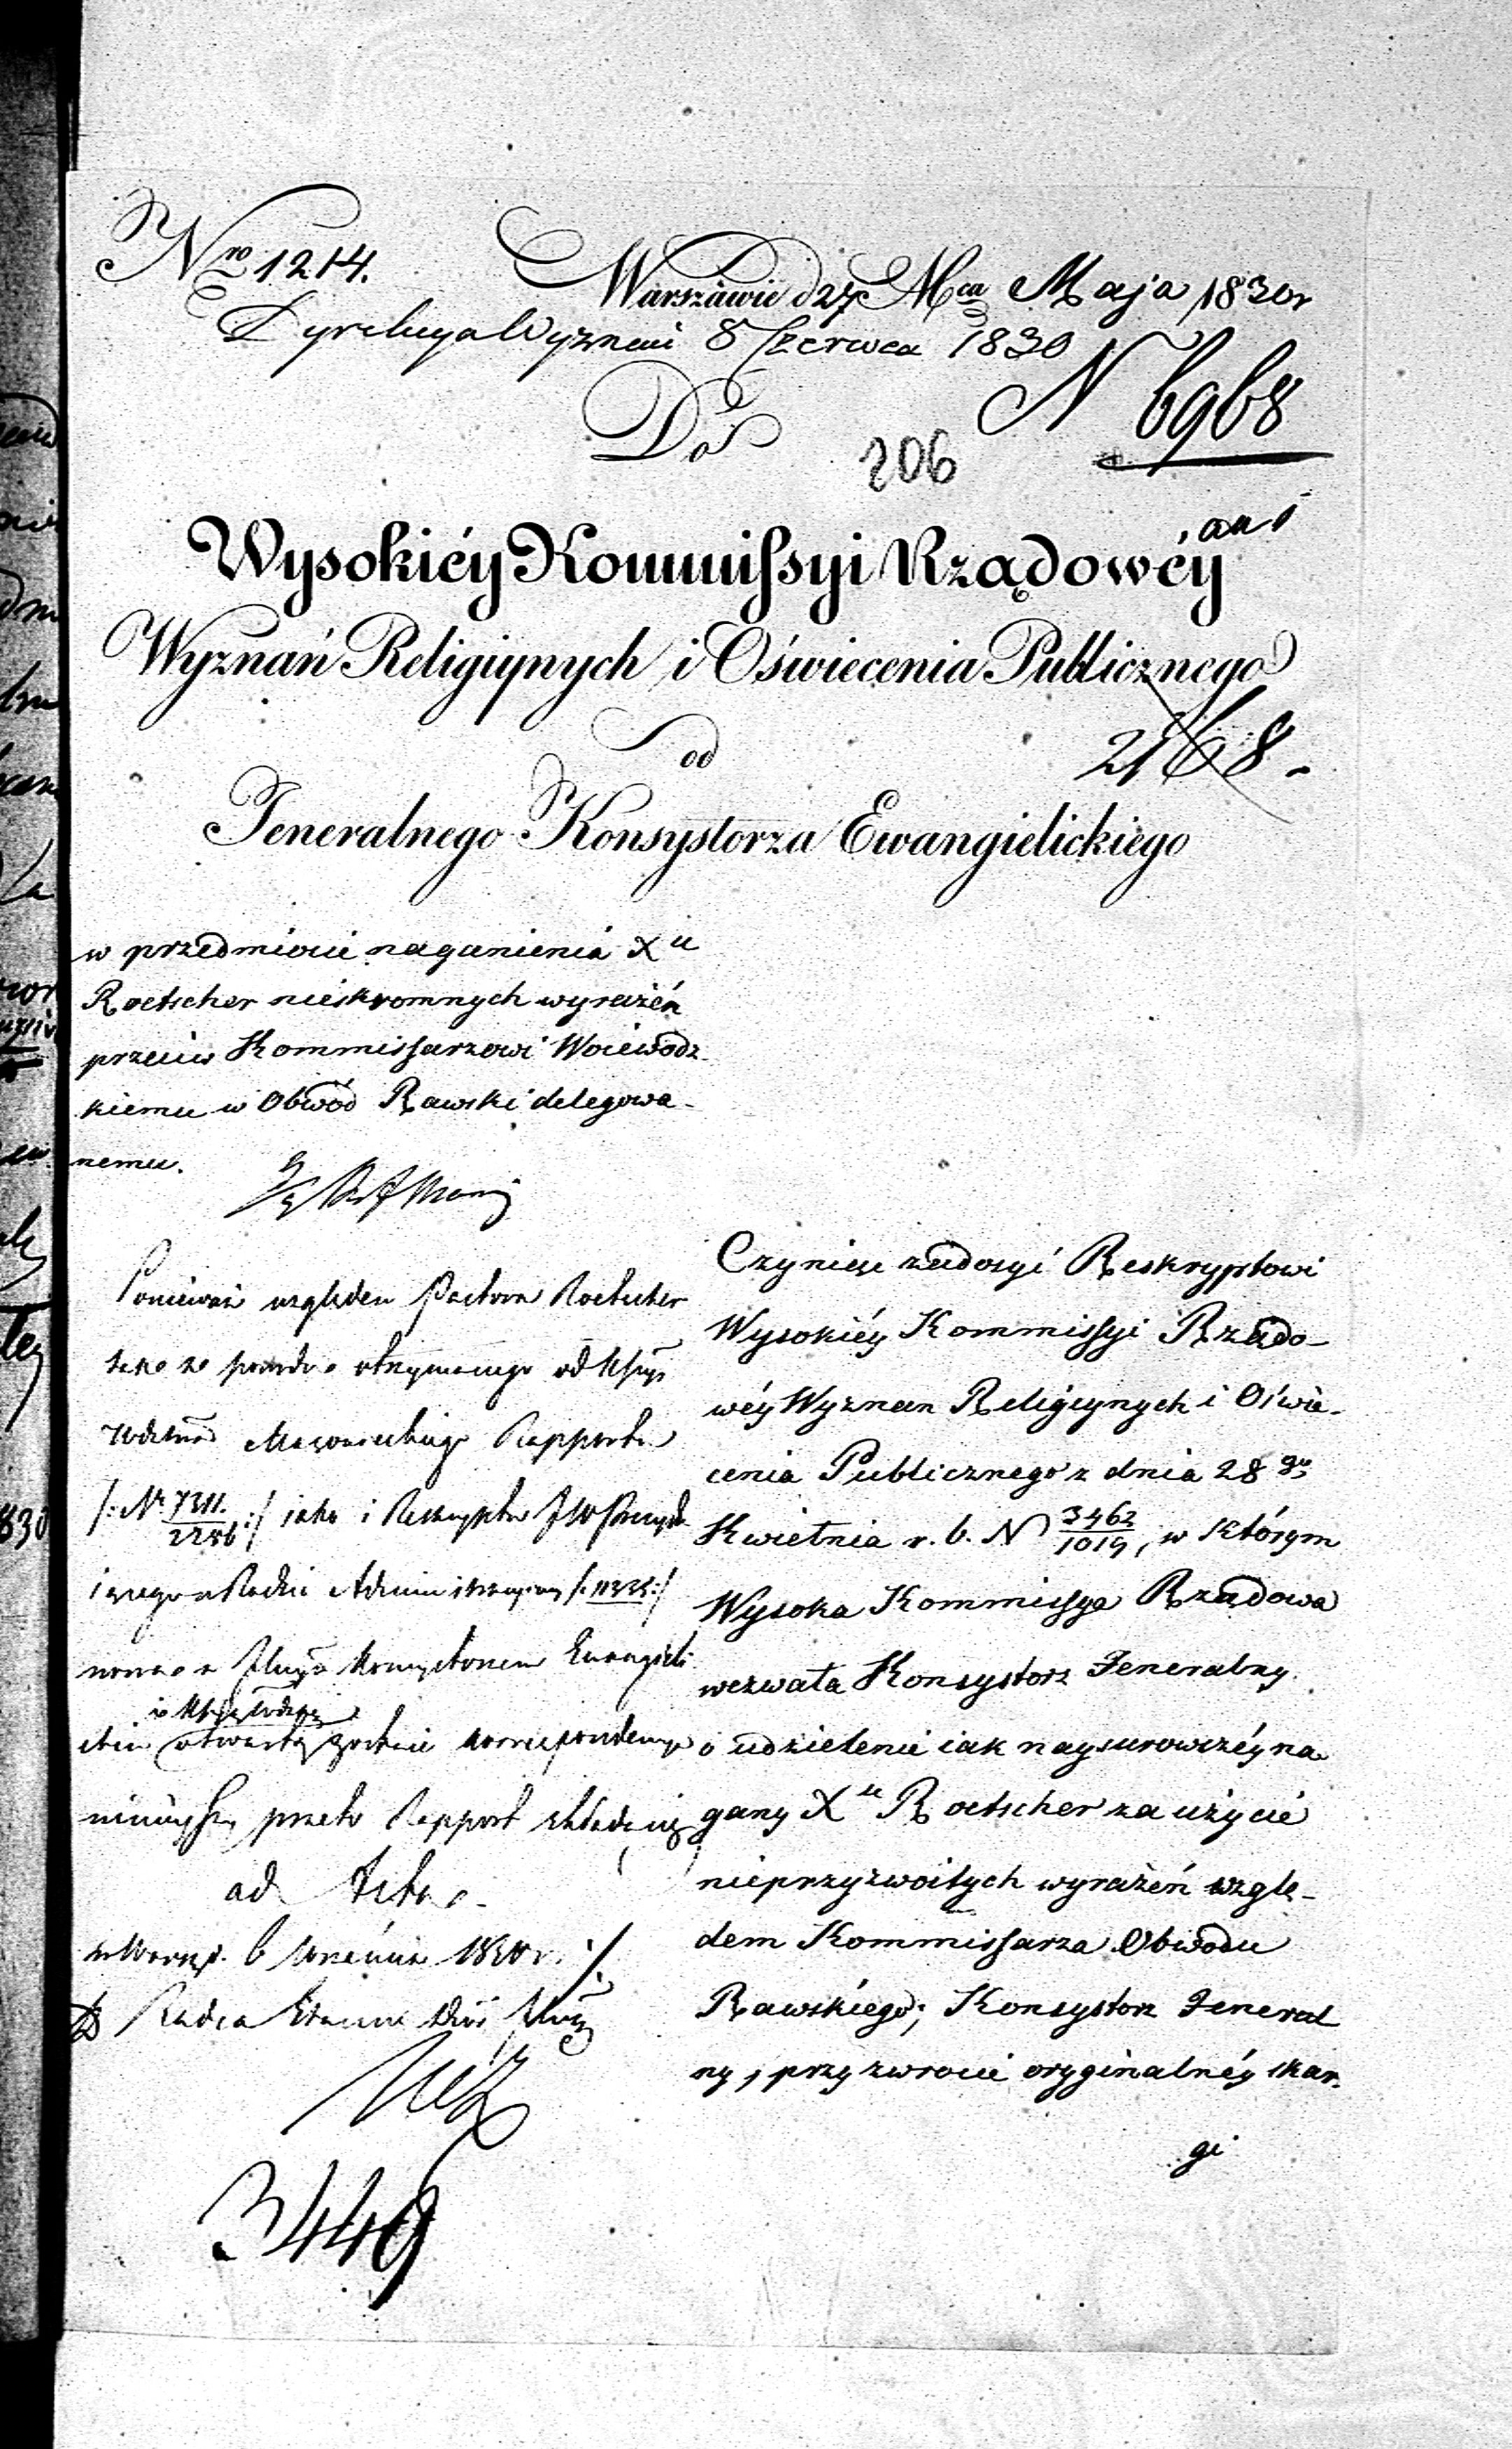 Nro 1214.
Warszawie d 27 Mca Maja 1830r
Dyrekcya Wyznań 8 Czerwca 1830
N 6968
Do
206
Wysokiéy Kommissyi Rządowéy
Wyznań Religiynych i Oświecenia Publicznego
2168.
od
Jeneralnego Konsystorza Ewangielickiego
w przedmiocie naganienia Xu
Roetscher nieskromnych wyrażéń
przeciw Kommissarzowi Woiewodz-
kiemu w Obwód Rawski delegowa-
nemu.
Ponieważ względem Pastora Roetscher
otrzymanego od
Mazowieckiego Rapportu
/: Nr 7311. / 2286 :/ iako i Reskryptu
w Radzie Administracyiney
Konsystorzem Ewangieli-
otwartą zostanie korrespondencya
ninieyszy przeto Rapport składa się
ad Acta.
w Warsz. 6 Września 1830 r. ./.
Radca Stanu
3449
Czyniąc zadosyć Reskryptowi
Wysokiéy Kommissyi Rządo-
wéy Wyznan Religiynych i Oświe-
cenia Publicznego z dnia 28 go
Kwietnia r. b. N 3462/1019, w którym
Wysoka Kommissya Rządowa
wezwała Konsystorz Jeneralny
o udzielenie iak naysurowszéy na-
gany Xu Roetscher za użycié
nieprzyzwoitych wyrażéń wzglę-
dem Kommissarza Obwodu
Rawskiégo; Konsystorz Jeneral
ny, przy zwrocie oryginalnéy skar-
gi